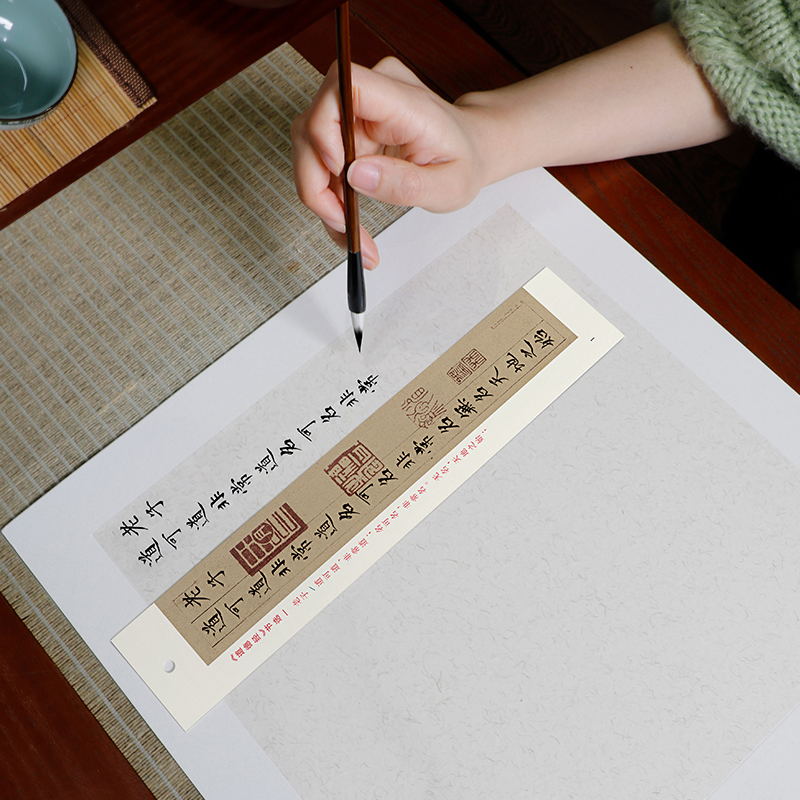 老子
道可道非常道名可名非常
老子
道可道非常道名可名非常名無名天地之始
《道德经》节选一 老子/道可道，非常道；名可名，非常名。无名，天地之始；
1